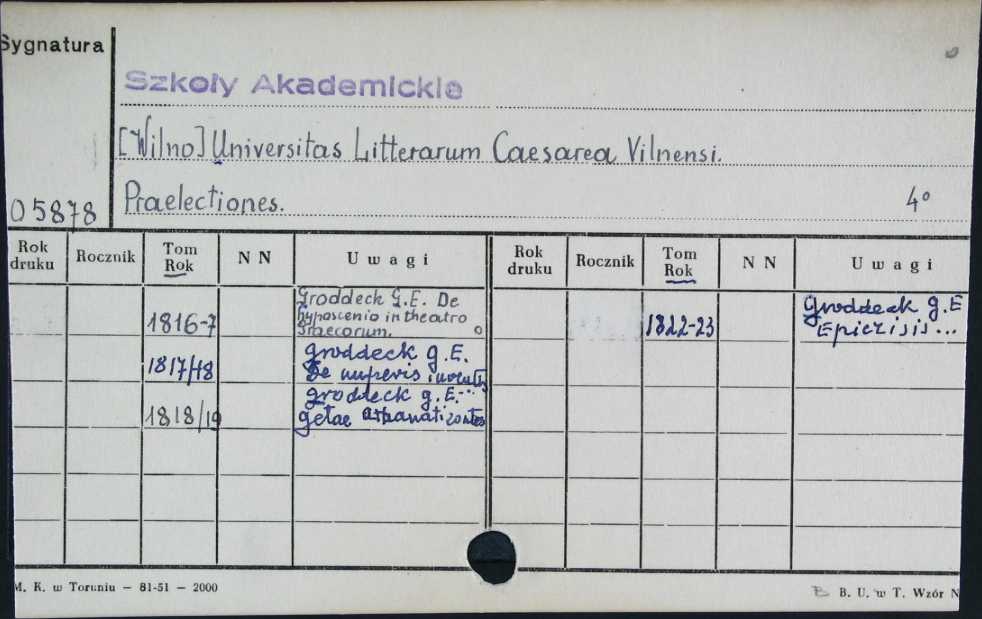 Sygnatura
Szkoły Akademickie
[Wilno] Universitas Litterarum Caesarea Vilnensi.
O 5878
Praelectiones. 4°
Rok druku Rocznik Tom Rok N N U w a g i Rok druku Rocznik Tom Rok N N U w a g i
1816-7 Groddeck G.E. De
hyposcenio in theatro
Graecorum.
1822-23 Groddeck g.E
Epicrisis...
1817/18 groddeck g.E.
De nuperis inventis
1818/19 groddeck g.E...
getae athanatizontes
M. K. w Toruniu — 81-51 — 2000
B. U. w T. Wzór N